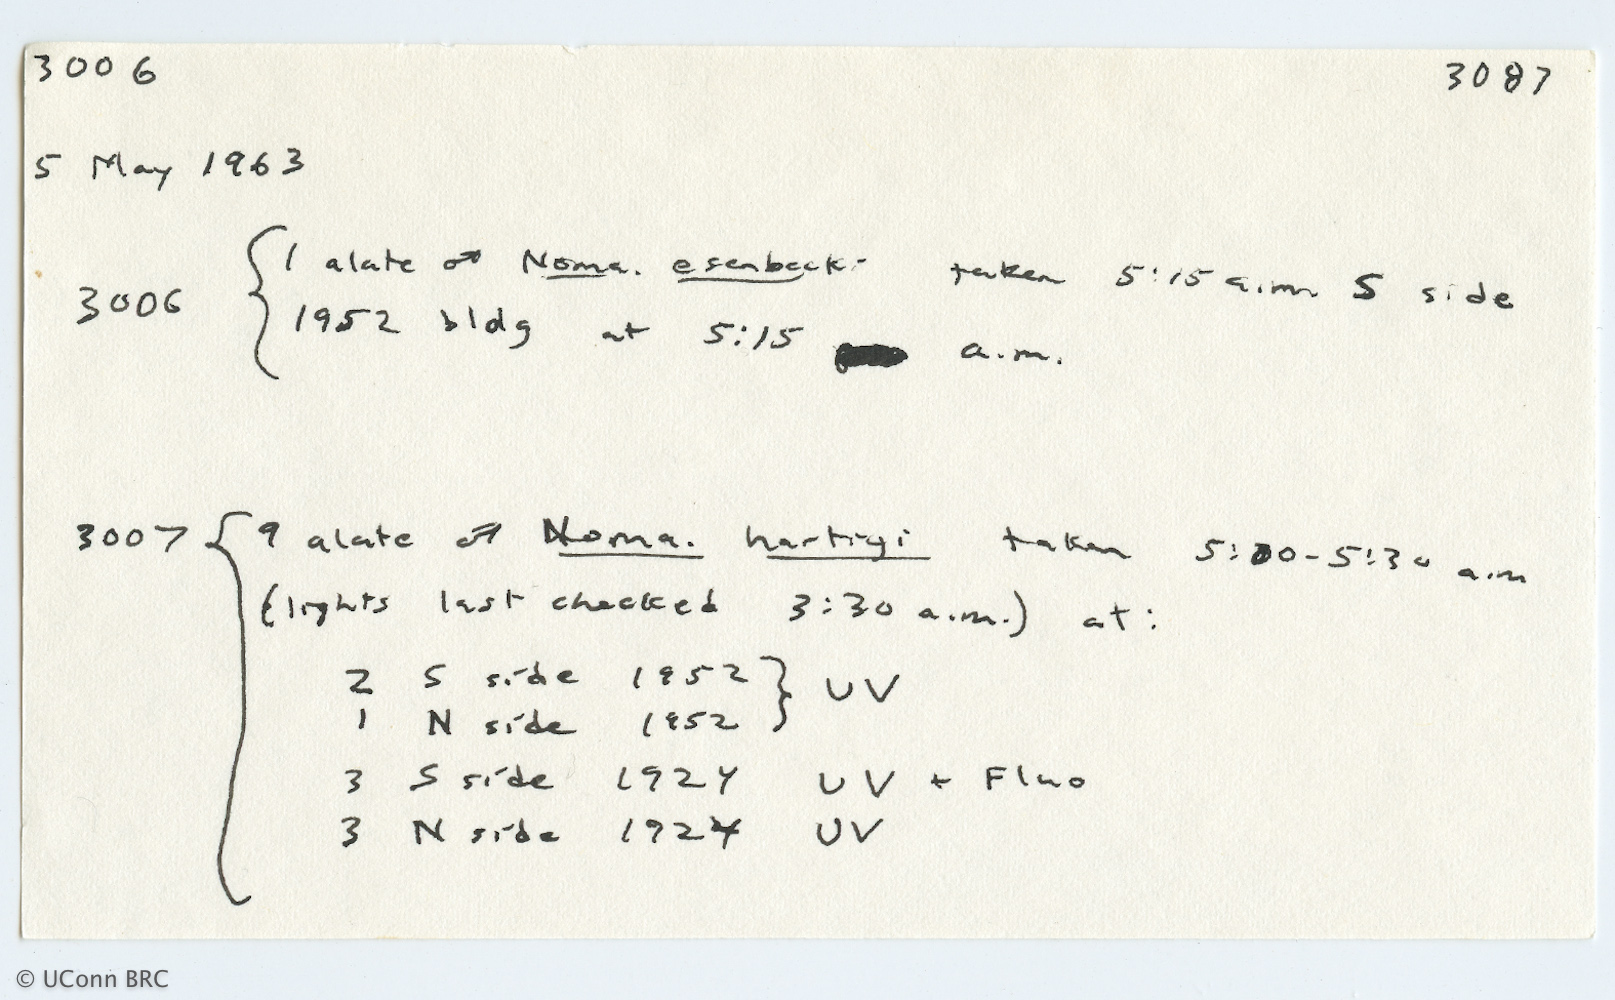 3006 3087
5 May 1963
3006 { 1 alate ♂ Noma. esenbecki taken 5:15 a.m. S side
1952 bldg at 5:15 a.m.
3007 { 9 alate ♂ Noma. hartigi taken 5:00-5:30 a.m
(lights last checked 3:30 a.m.) at:
2 S side 1952 } UV
1 N side 1952
3 S side 1924 UV + Fluo
3 N side 1924 UV
© UConn BRC